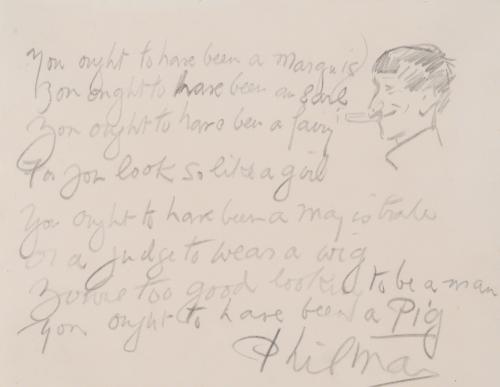 You ought to have been a Marquis
You ought to have been an Earl
You ought to have been a fairy
For you look so like a girl
You ought to have been a magistrate
or a judge to wear a wig
You're too good looking to be a man
You ought to have been a Pig
Phil May